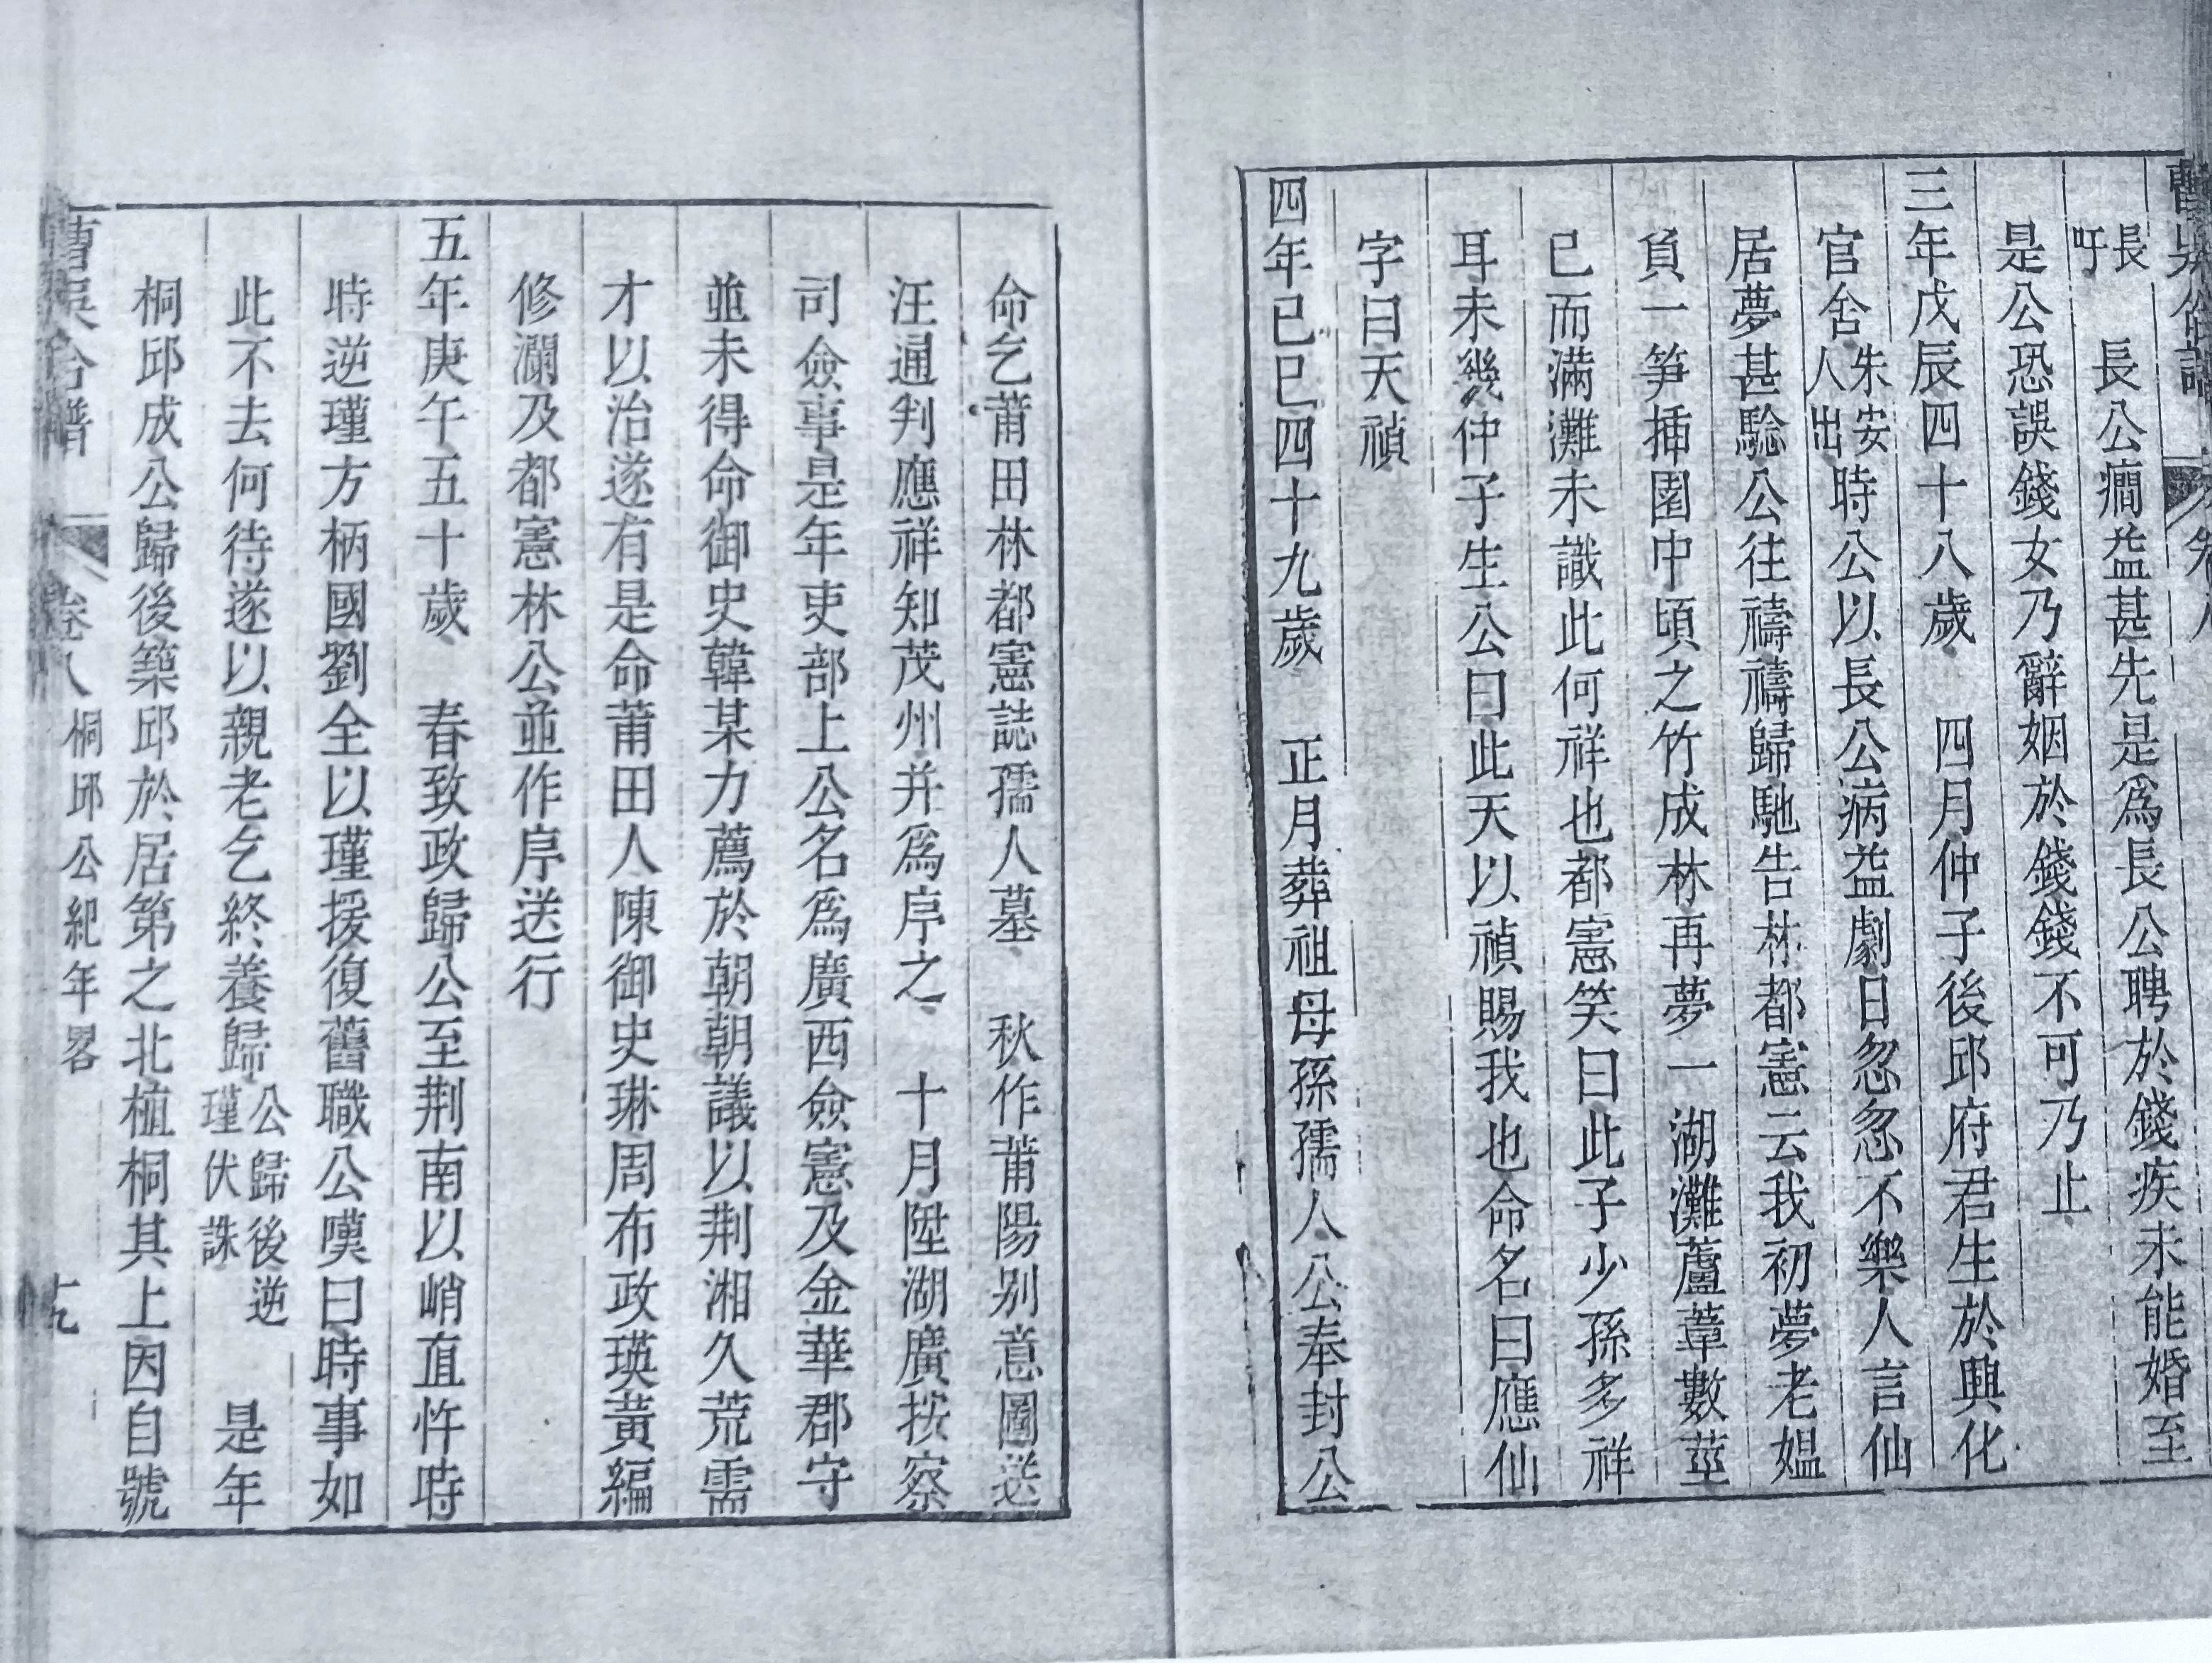 長
吁
長公癎益甚先是爲長公聘於錢疾未能婚至
是公恐誤錢女乃辭姻於錢錢不可乃止
三年戊辰四十八歲 四月仲子後邱府君生於興化
官舍朱安人出時公以長公病益劇日忽忽不樂人言仙
居夢甚騐公往禱禱歸馳告林都憲云我初夢老媪
負一笋插園中頃之竹成林再夢一湖灘蘆葦數莖
已而滿灘未識此何祥也都憲笑曰此子少孫多祥
耳未幾仲子生公曰此天以禎賜我也命名曰應仙
字曰天禎
四年己巳四十九歲 正月葬祖母孫孺人公奉封公
命乞莆田林都憲誌孺人墓 秋作莆陽别意圖送
汪通判應祥知茂州并爲序之 十月陞湖廣按察
司僉事是年吏部上公名爲廣西僉憲及金華郡守
並未得命御史韓某力薦於朝朝議以荆湘久荒需
才以治遂有是命莆田人陳御史琳周布政瑛黃編
修瀾及都憲林公並作序送行
五年庚午五十歲 春致政歸公至荆南以峭直忤時
時逆瑾方柄國劉全以瑾援復舊職公嘆曰時事如
此不去何待遂以親老乞終養歸公歸後逆瑾伏誅 是年
桐邱成公歸後築邱於居第之北植桐其上因自號
卷八 桐邱公紀年畧 十九